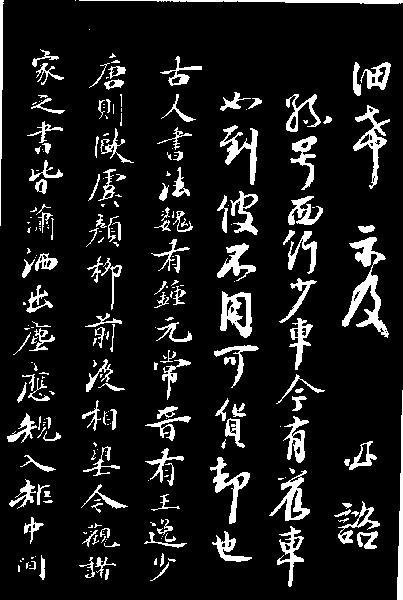 希 示及 諮
号西行少車今有舊車
如到彼不用可貨却也
古人書法魏有鍾元常晉有王逸少
唐則歐虞顏柳前後相望今觀諸
家之書皆蕭洒出塵應規入矩中間